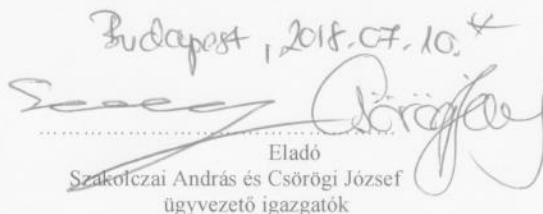 Budapest, 2018.07.10.
Eladó
Szakolczai András és Csörögi József
ügyvezető igazgatók